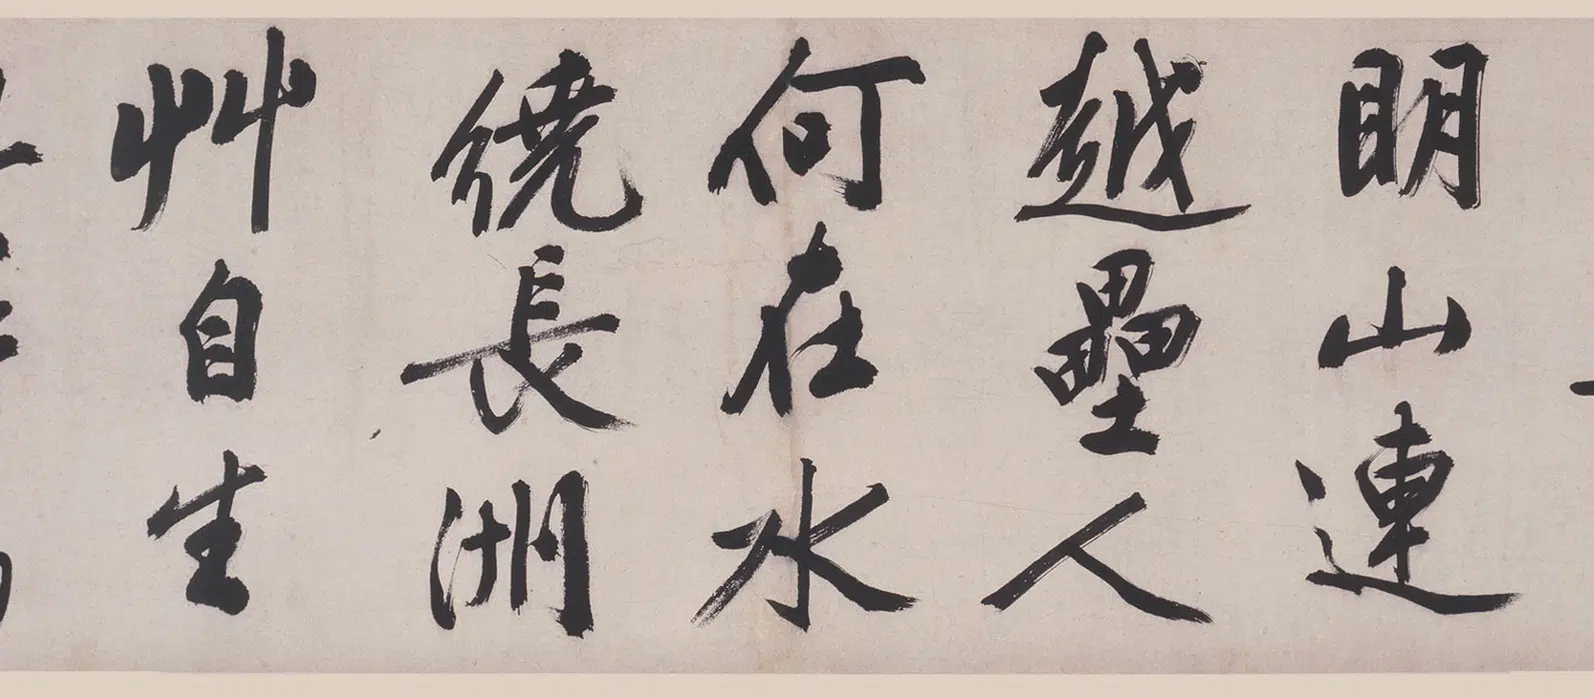 明山連
越壘人
何在水
繞長洲
艸自生